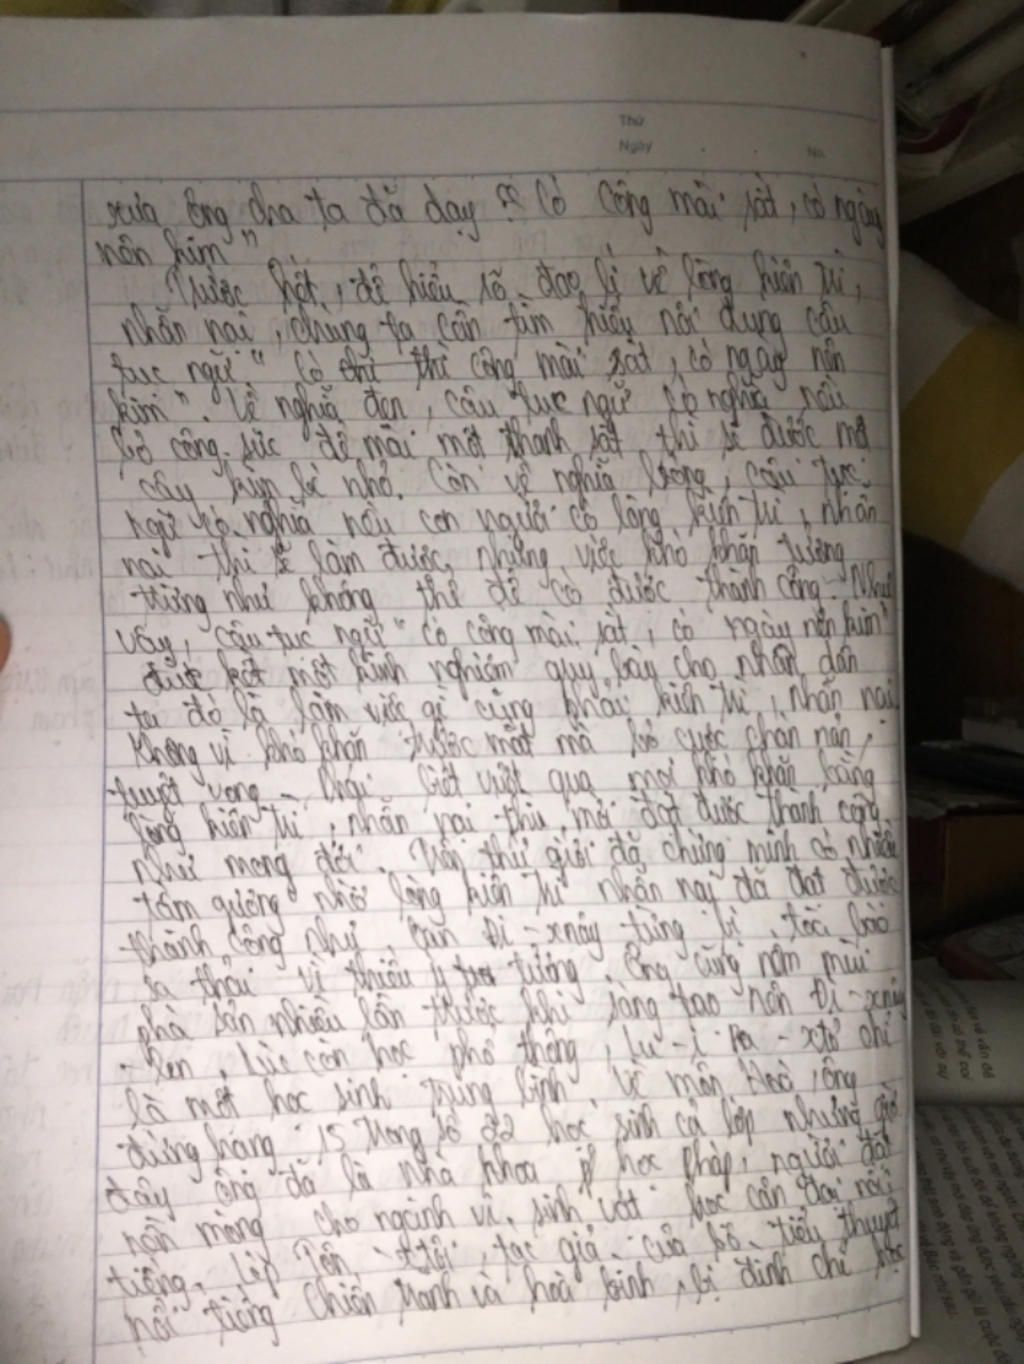 Thứ
Ngày
No.
xưa ông cha ta đã dạy " Có công mài sắt, có ngày
nên kim "
Trước hết, để hiểu rõ đạo lí về lòng kiên trì,
nhẫn nại, chúng ta cần tìm hiểu nội dung câu
tục ngữ " Có thì công mài sắt, có ngày nên
kim". Về nghĩa đen, câu tục ngữ có nghĩa nếu
bỏ công sức để mài một thanh sắt thì sẽ được một
cây kim bé nhỏ. Còn về nghĩa bóng, câu tục
ngữ có nghĩa nếu con người có lòng kiên trì, nhẫn
nại thì sẽ làm được những việc khó khăn tưởng
trừng như không thể để có được thành công. Như
vậy, câu tục ngữ " có công mài sắt, có ngày nên kim"
đúc kết một kinh nghiệm quý báu cho nhân dân
ta đó là làm việc gì cũng phải kiên trì, nhẫn nại
không vì khó khăn trước mắt mà bỏ cuộc chán nản,
tuyệt vọng. Phải biết vượt qua mọi khó khăn bằng
lòng kiên trì, nhẫn nại thì mới đạt được thành công
như mong đợi. thế giới đã chứng minh có nhiều
tấm gương nhờ lòng kiên trì nhẫn nại đã đạt được
thành công như, Oan Đi-xnây từng bị toà báo
sa thải vì thiếu ý tưởng. Ông cũng nếm mùi
phá sản nhiều lần trước khi sáng tạo nên Đi-xnây
-len. Lúc còn học phổ thông, Lu-i Pa-xtơ chỉ
là một học sinh trung bình. Về môn Hoá, ông
đứng hàng 15 trong số 22 học sinh cả lớp nhưng giờ
đây ông đã là nhà khoa học Pháp, người đặt
nền móng cho ngành vi sinh vật học cận đại nổi
tiếng. Lép Tôn-xtôi, tác giả của bộ tiểu thuyết
nổi tiếng Chiến tranh và hoà bình, bị đình chỉ học